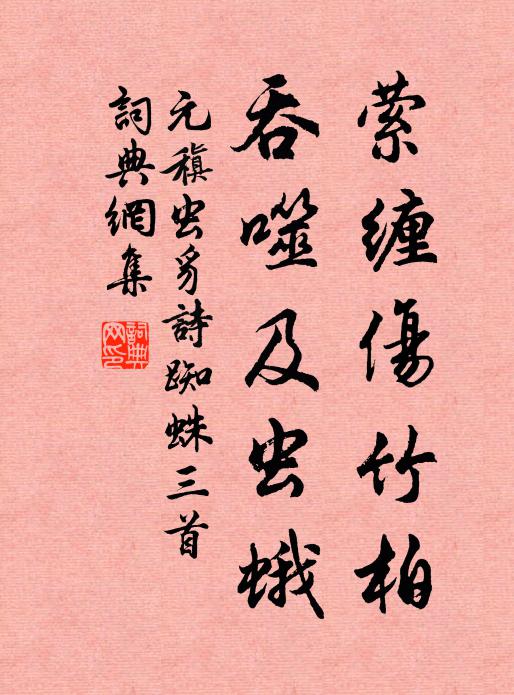 萦缠傷竹柏
吞噬及虫蛾
元稹虫豸詩蜘蛛三首
詞典網集
詞典网印